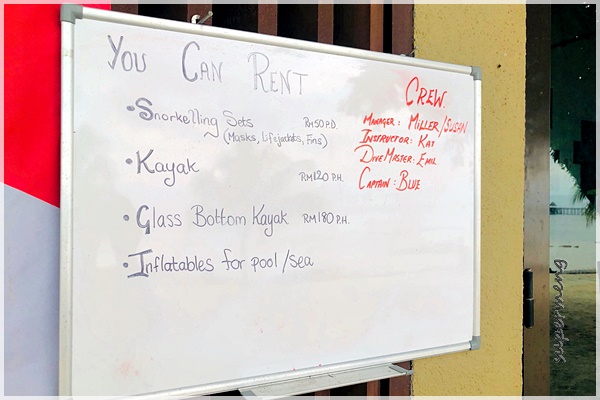 You Can Rent
• Snorkelling Sets RM50 P.D.
(Masks, Lifejackets, Fins)
• Kayak RM120 P.H.
• Glass Bottom Kayak RM180 P.H.
• Inflatables for pool/sea
Crew.
Manager: Miller/Susan
Instructor: Kat
DiveMaster: Emil
Captain: Blue
supermeng